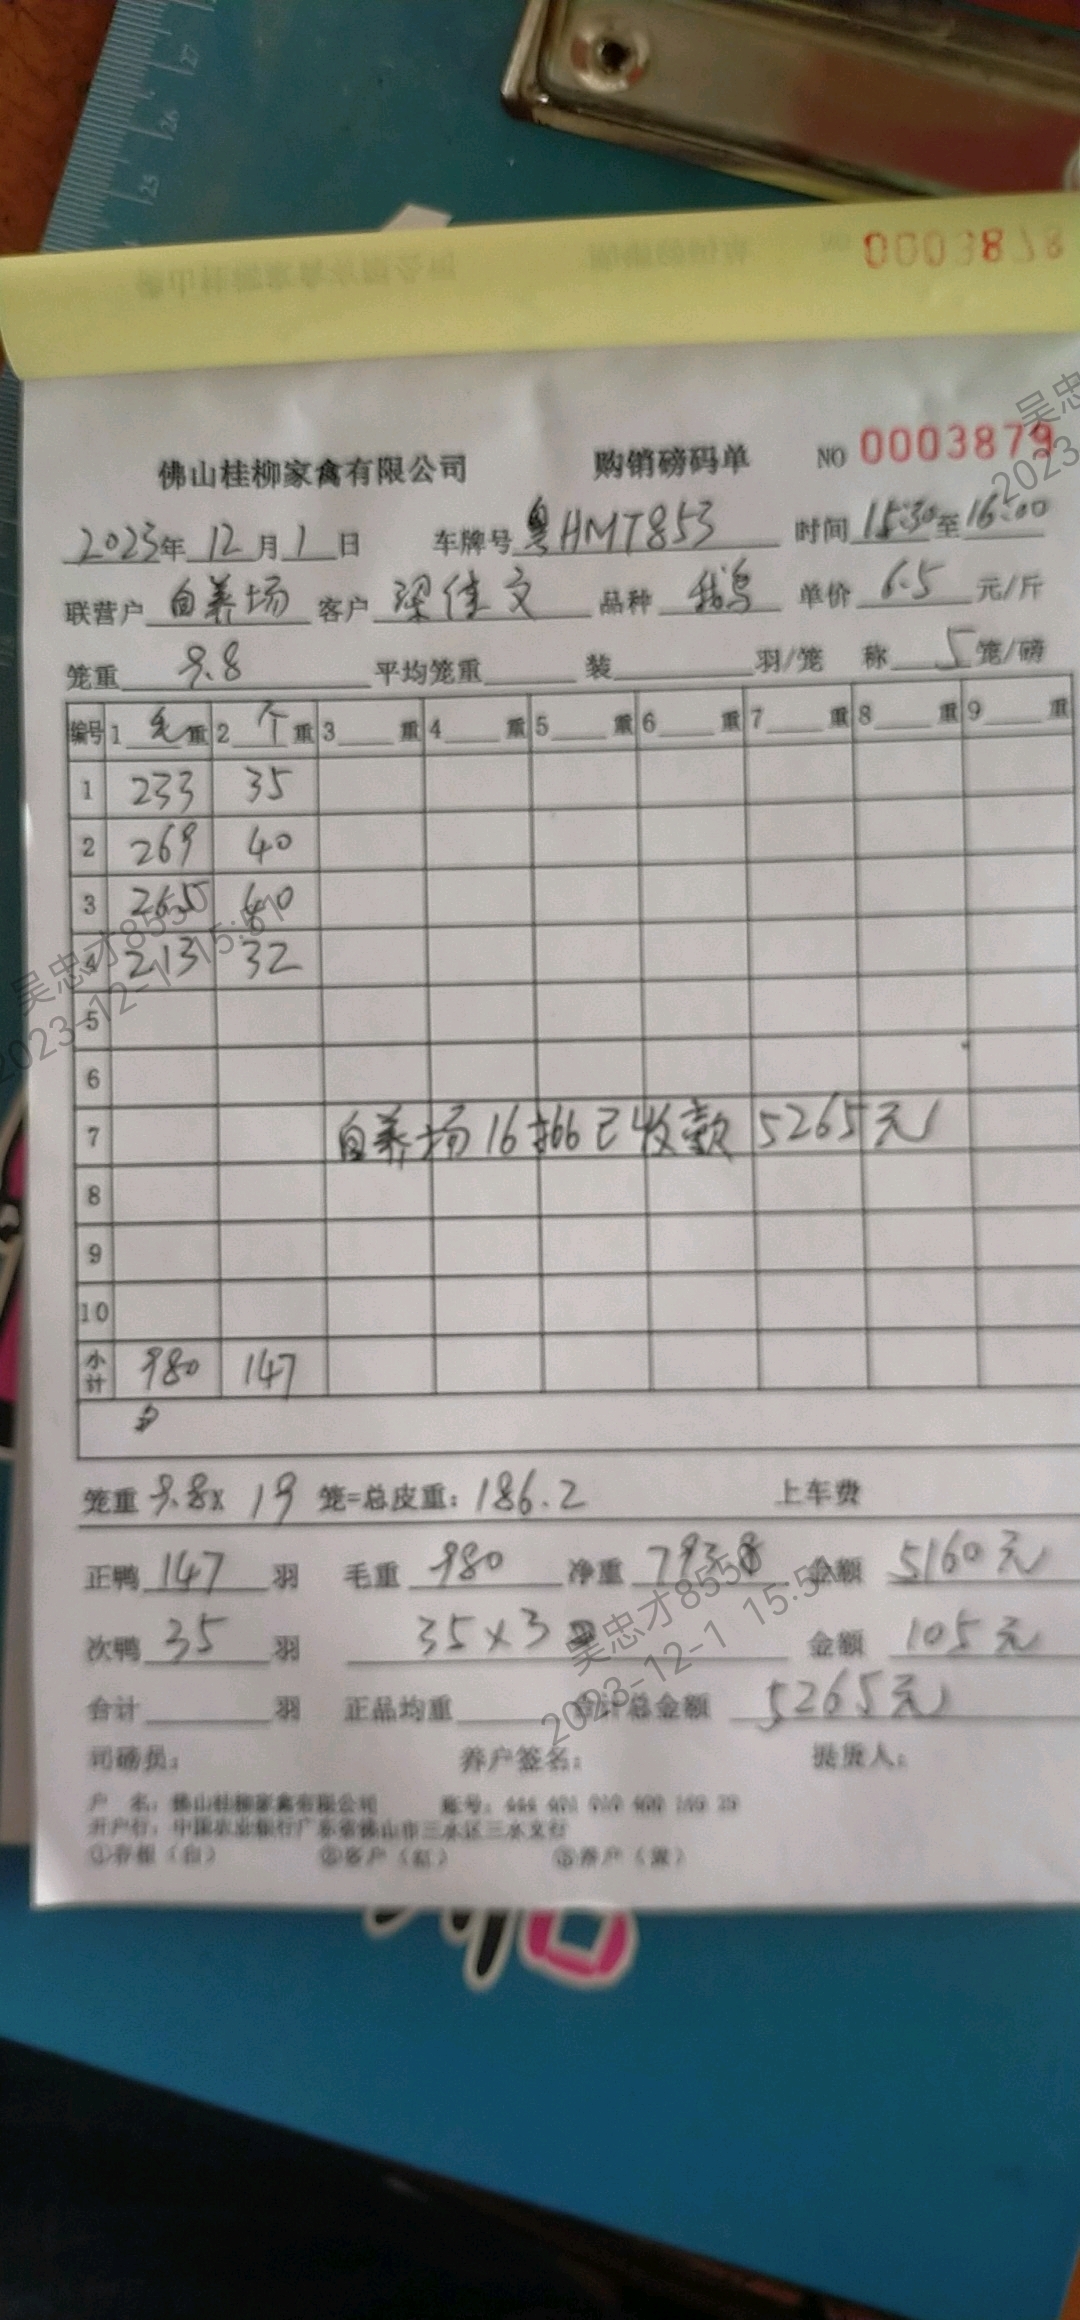 27
26
25
0003878
佛山桂柳家禽有限公司 购销磅码单 NO 0003879
2023年12月1日 车牌号 粤HMT853 时间 15:30至16:00
联营户 自养场 客户 梁佳文 品种 鹅 单价 6.5 元/斤
笼重 9.8 平均笼重 装 羽/笼 称 5 笼/磅
编号 1 毛重 2 个重 3 重 4 重 5 重 6 重 7 重 8 重 9 重
1 233 35
2 269 40
3 265 40
4 213 32
5
6
7 自养场16 已收款 5265元
8
9
10
小计 980 147
笼重 9.8x 19 笼=总皮重：186.2 上车费
正鸭 147 羽 毛重 980 净重 793.8 金额 5160元
次鸭 35 羽 35×3 金额 105元
合计 羽 正品均重 合计总金额 5265元
司磅员： 养户签名： 提货人：
户 名：佛山桂柳家禽有限公司 账号：
开户行：中国农业银行广东省佛山市三水区三水支行
①存根（白） ②客户（红） ③养户（黄）
吴忠才8550
2023-12-1 15:51
吴忠才8550
2023-12-1 15:5
吴忠
2023